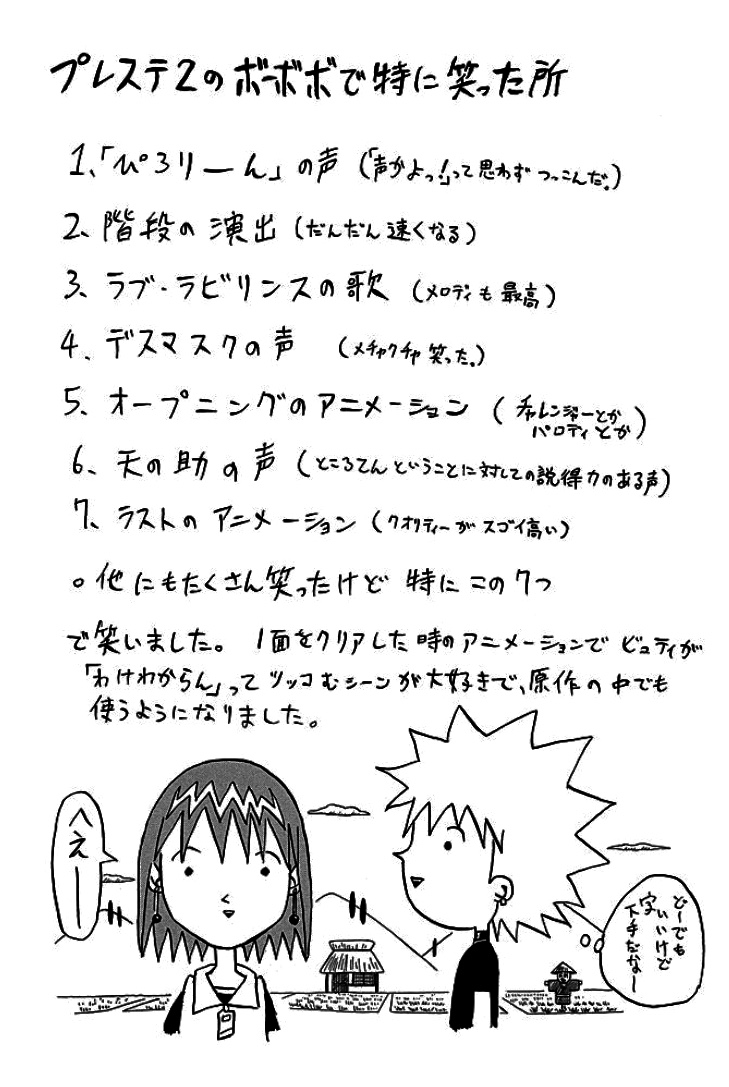 プレステ2のボーボボで特に笑った所
1、「ぴろりーん」の声（「声かよっ!」って思わずつっこんだ。）
2、階段の演出（だんだん速くなる）
3、ラブ・ラビリンスの歌（メロディも最高）
4、デスマスクの声（メチャクチャ笑った。）
5、オープニングのアニメーション（チャレンジャーとか
パロディとか）
6、天の助の声（ところてんということに対しての説得力のある声）
7、ラストのアニメーション（クオリティーがスゴイ高い）
○他にもたくさん笑ったけど特にこの7つ
で笑いました。1面をクリアした時のアニメーションでビュティが
「わけわからん」ってツッコむシーンが大好きで、原作の中でも
使うようになりました。
へえー
どーでも
いいけど
字
下手だなー